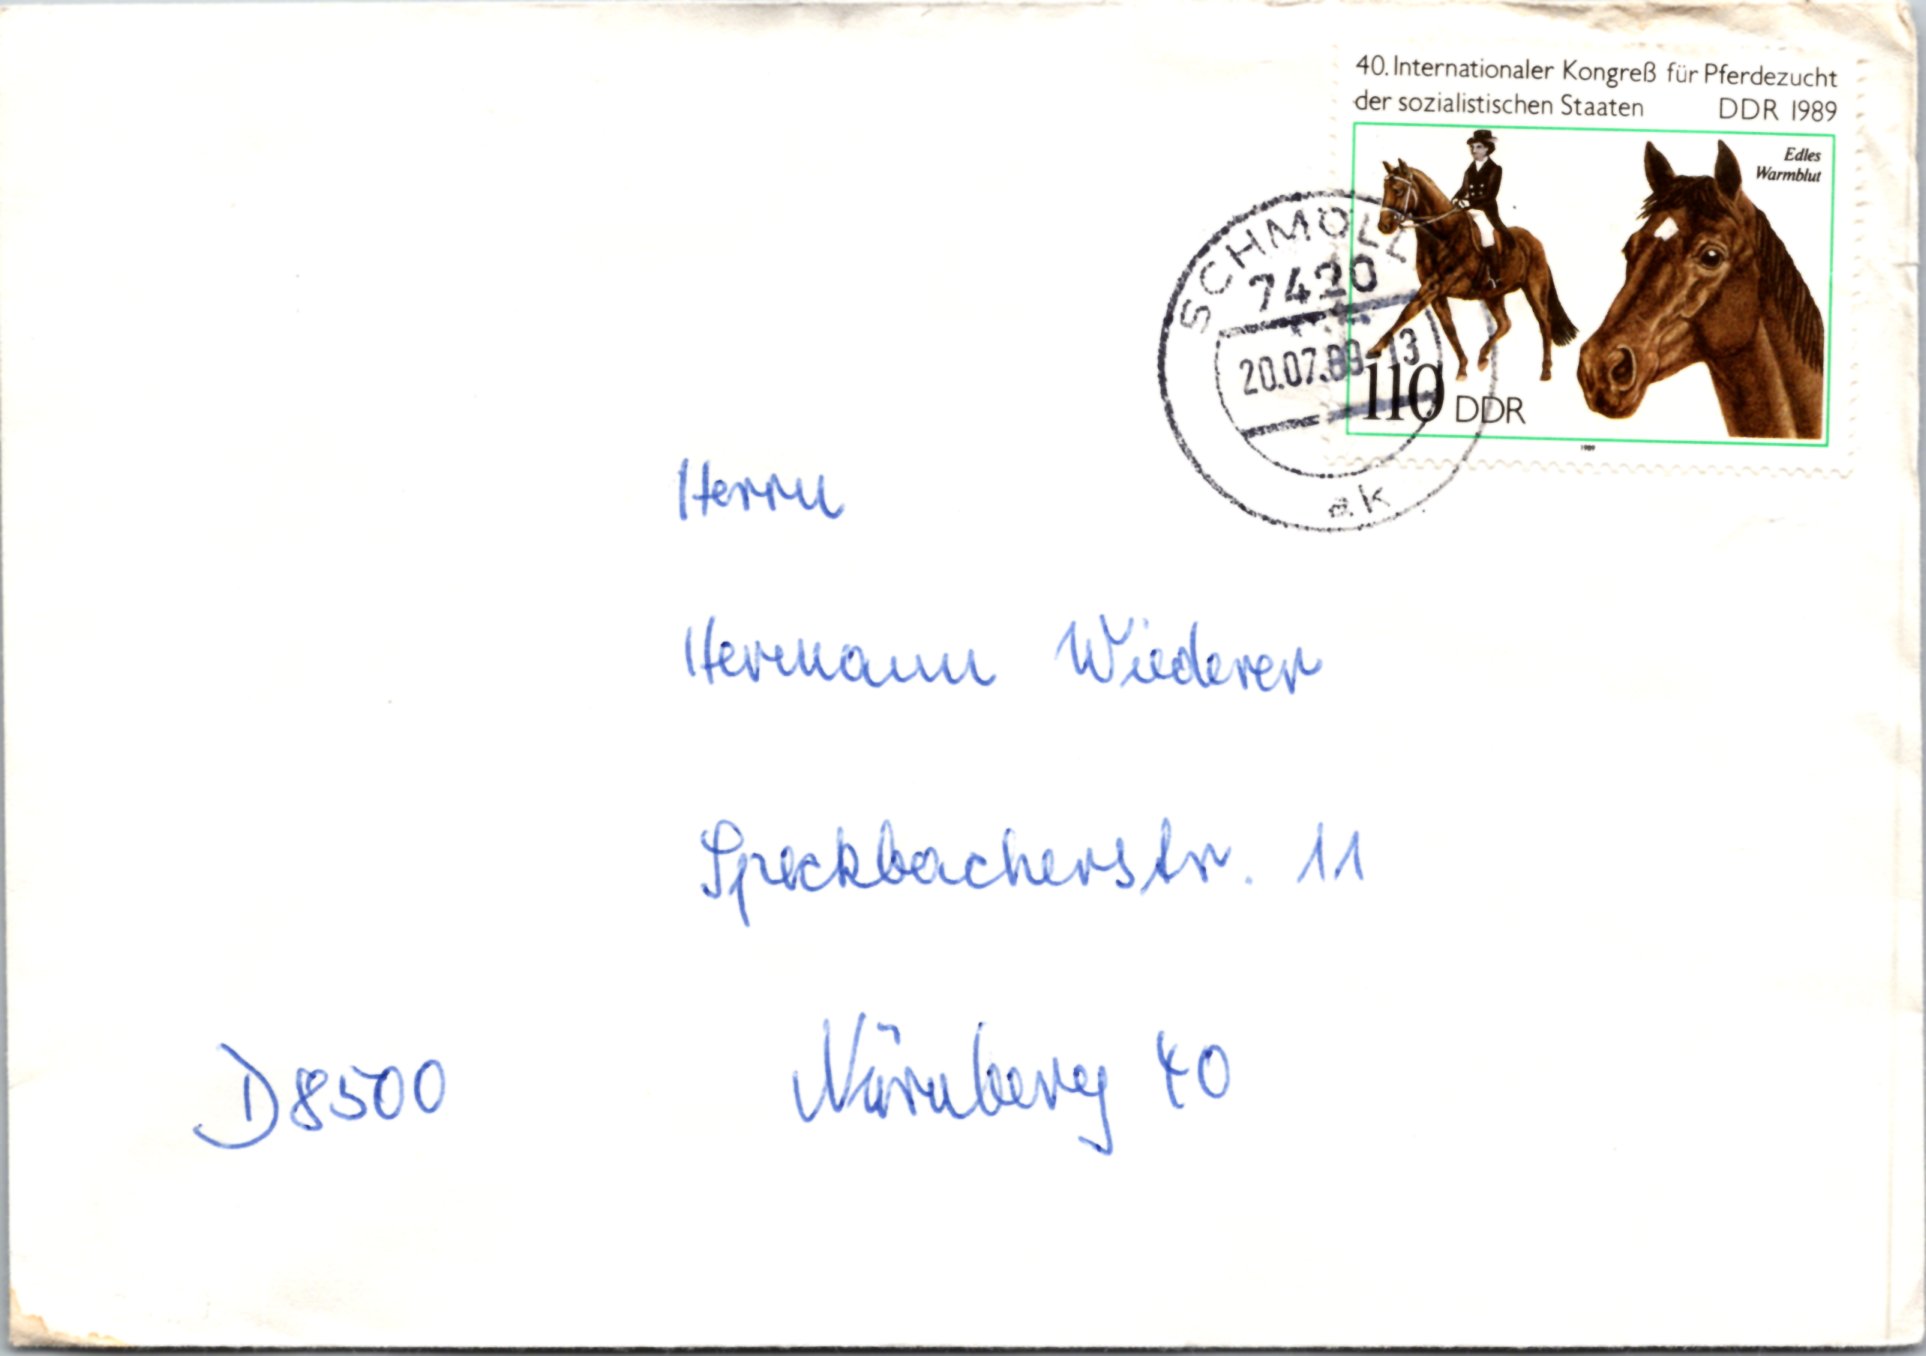 40. Internationaler Kongreß für Pferdezucht
der sozialistischen Staaten DDR 1989
Edles
Warmblut
110 DDR
1989
SCHMÖLL
7420
20.07.89-13
ak
Herrn
Hermann Wiederer
Speckbacherstr. 11
D8500 Nürnberg 40